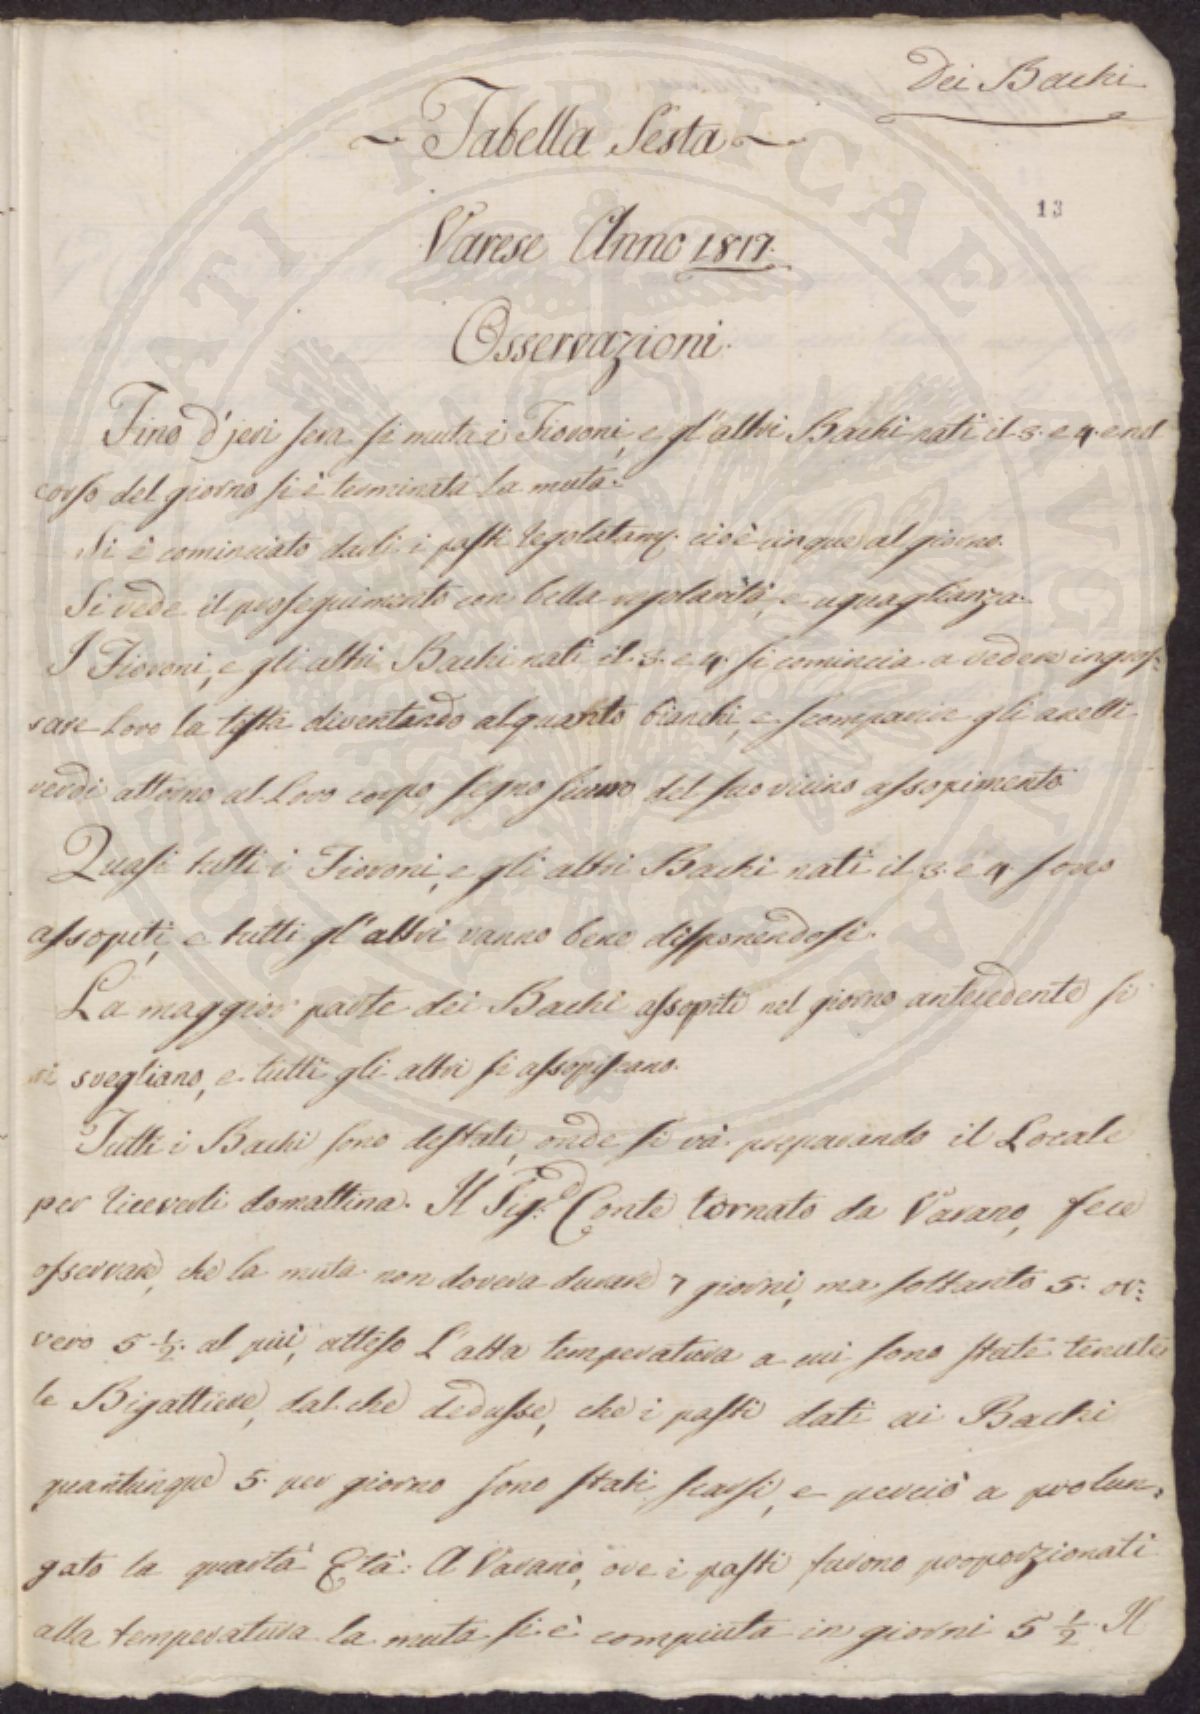 Dei Bachi
~ Tabella Sesta ~
13
Varese Anno 1817.
Osservazioni.
Fino d'jeri sera si muta i Fioroni, e gl'altri Bachi nati il 3. e 4. e nel
corso del giorno si è terminata la muta.
Si è cominciato darli i pasti regolatam. cioè cinque al giorno.
Si vede il proseguimento con bella regolarità, e uguaglianza.
I Fioroni, e gli altri Bachi nati il 3. e 4. si comincia a vedere ingros:
sare loro la testa diventando alquanto bianchi, e scomparire gli anelli
verdi attorno al loro corpo, segno sicuro del suo vicino assopimento
Quasi tutti i Fioroni, e gli altri Bachi nati il 3. e 4. sono
assopiti, e tutti gl'altri vanno bene disponendosi.
La maggior parte dei Bachi assopiti nel giorno antecedente si
svegliano, e tutti gli altri si assopiscano.
Tutti i Bachi sono destati, onde si và preparando il Locale
per riceverli domattina. Il Sig. Conte tornato da Varano, fece
osservare, che la muta non doveva durare 7 giorni, ma soltanto 5. ov:
vero 5 ½. al più, atteso l'alta temperatura a cui sono state tenute
le Bigattiere, dal che dedusse, che i pasti dati ai Bachi
quantunque 5. per giorno sono stati scarsi, e perciò a prolun:
gato la quarta Età: A Varano, ove i pasti furono proporzionati
alla temperatura la muta si è compiuta in giorni 5 ½. Il